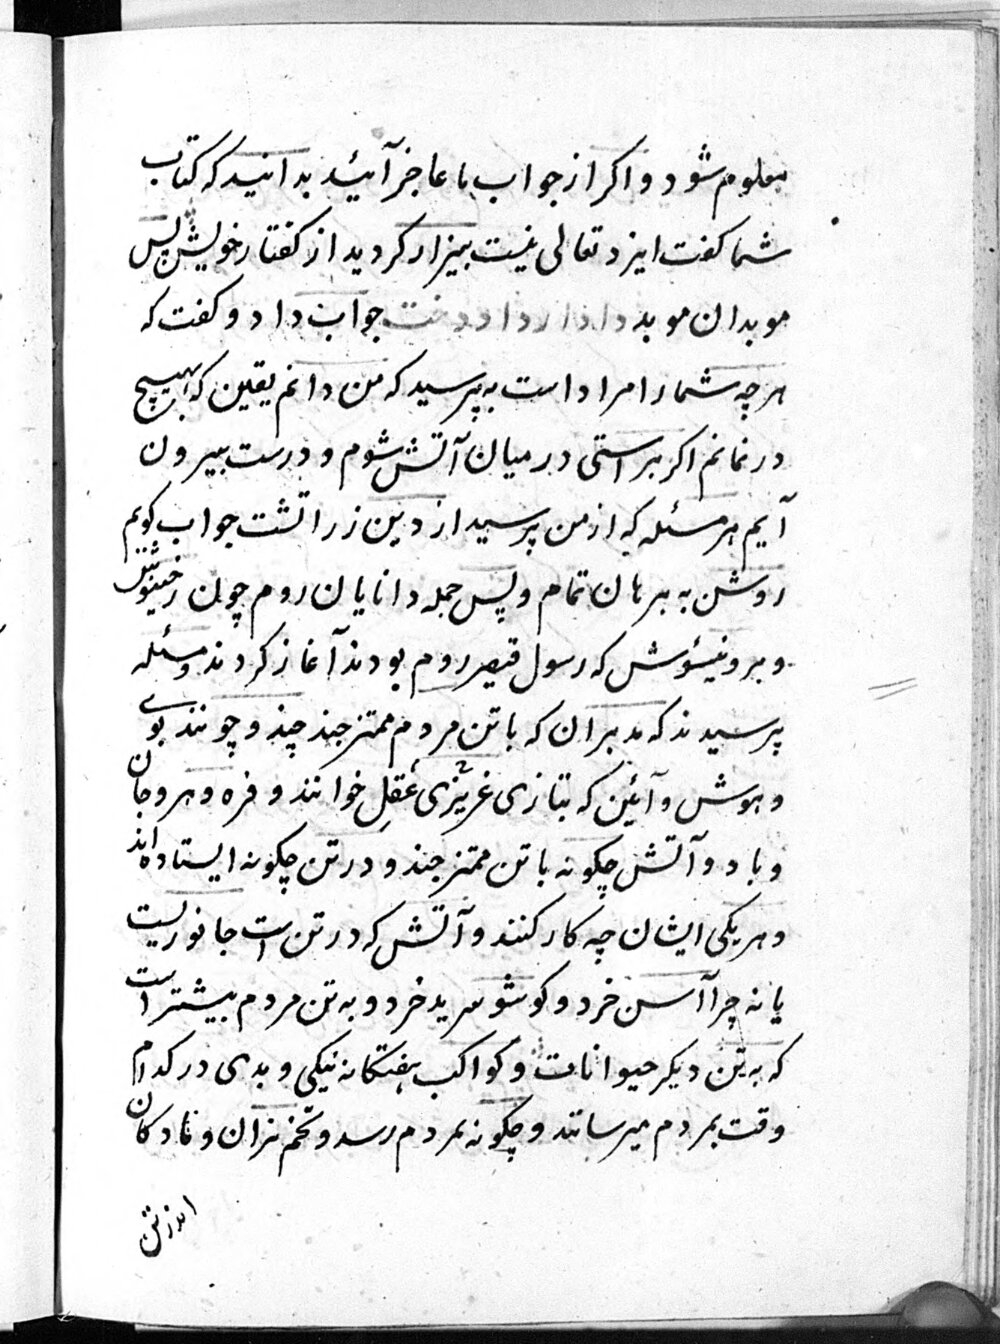 معلوم شود و اکر از جواب ما عاجز آئید بدانید که کتاب
شما کفت ایزد تعالی نیست بیزار کردید از کفتار خویش پس
موبدان موبد دادارداددخت جواب داد و کفت که
هر چه شما را مراد است به پرسید که من دانم یقین که بهیچ
در نمانم اکر براستی در میان آتش شوم و درست بیرون
آیم هر مسئله که از من پرسید از دین زراتشت جواب کویم
روشن به برهان تمام و پس جمله دانایان روم چون
که رسول قیصر روم بودند آغاز کردند و مسئله
پرسیدند که مدبران که با تن مردم ممتزجند چند و چونند بوی
و هوش و آئین که بتازی غریزی عقل خوانند و فره و هر و جان
و باد و آتش چکونه با تن ممتزجند و در تن چکونه ایستاده اند
و هر یکی ایشان چه کار کنند و آتش که در تن است جانوریست
یا نه چرا آسن خرد و کوشو سرید خرد و به تن مردم بیشتر است
که به تن دیکر حیوانات و کواکب هفتکانه نیکی و بدی در کدام
وقت بمردم میرسانند و چکونه بمردم رسد و تخم نران و مادکان
اندر تن